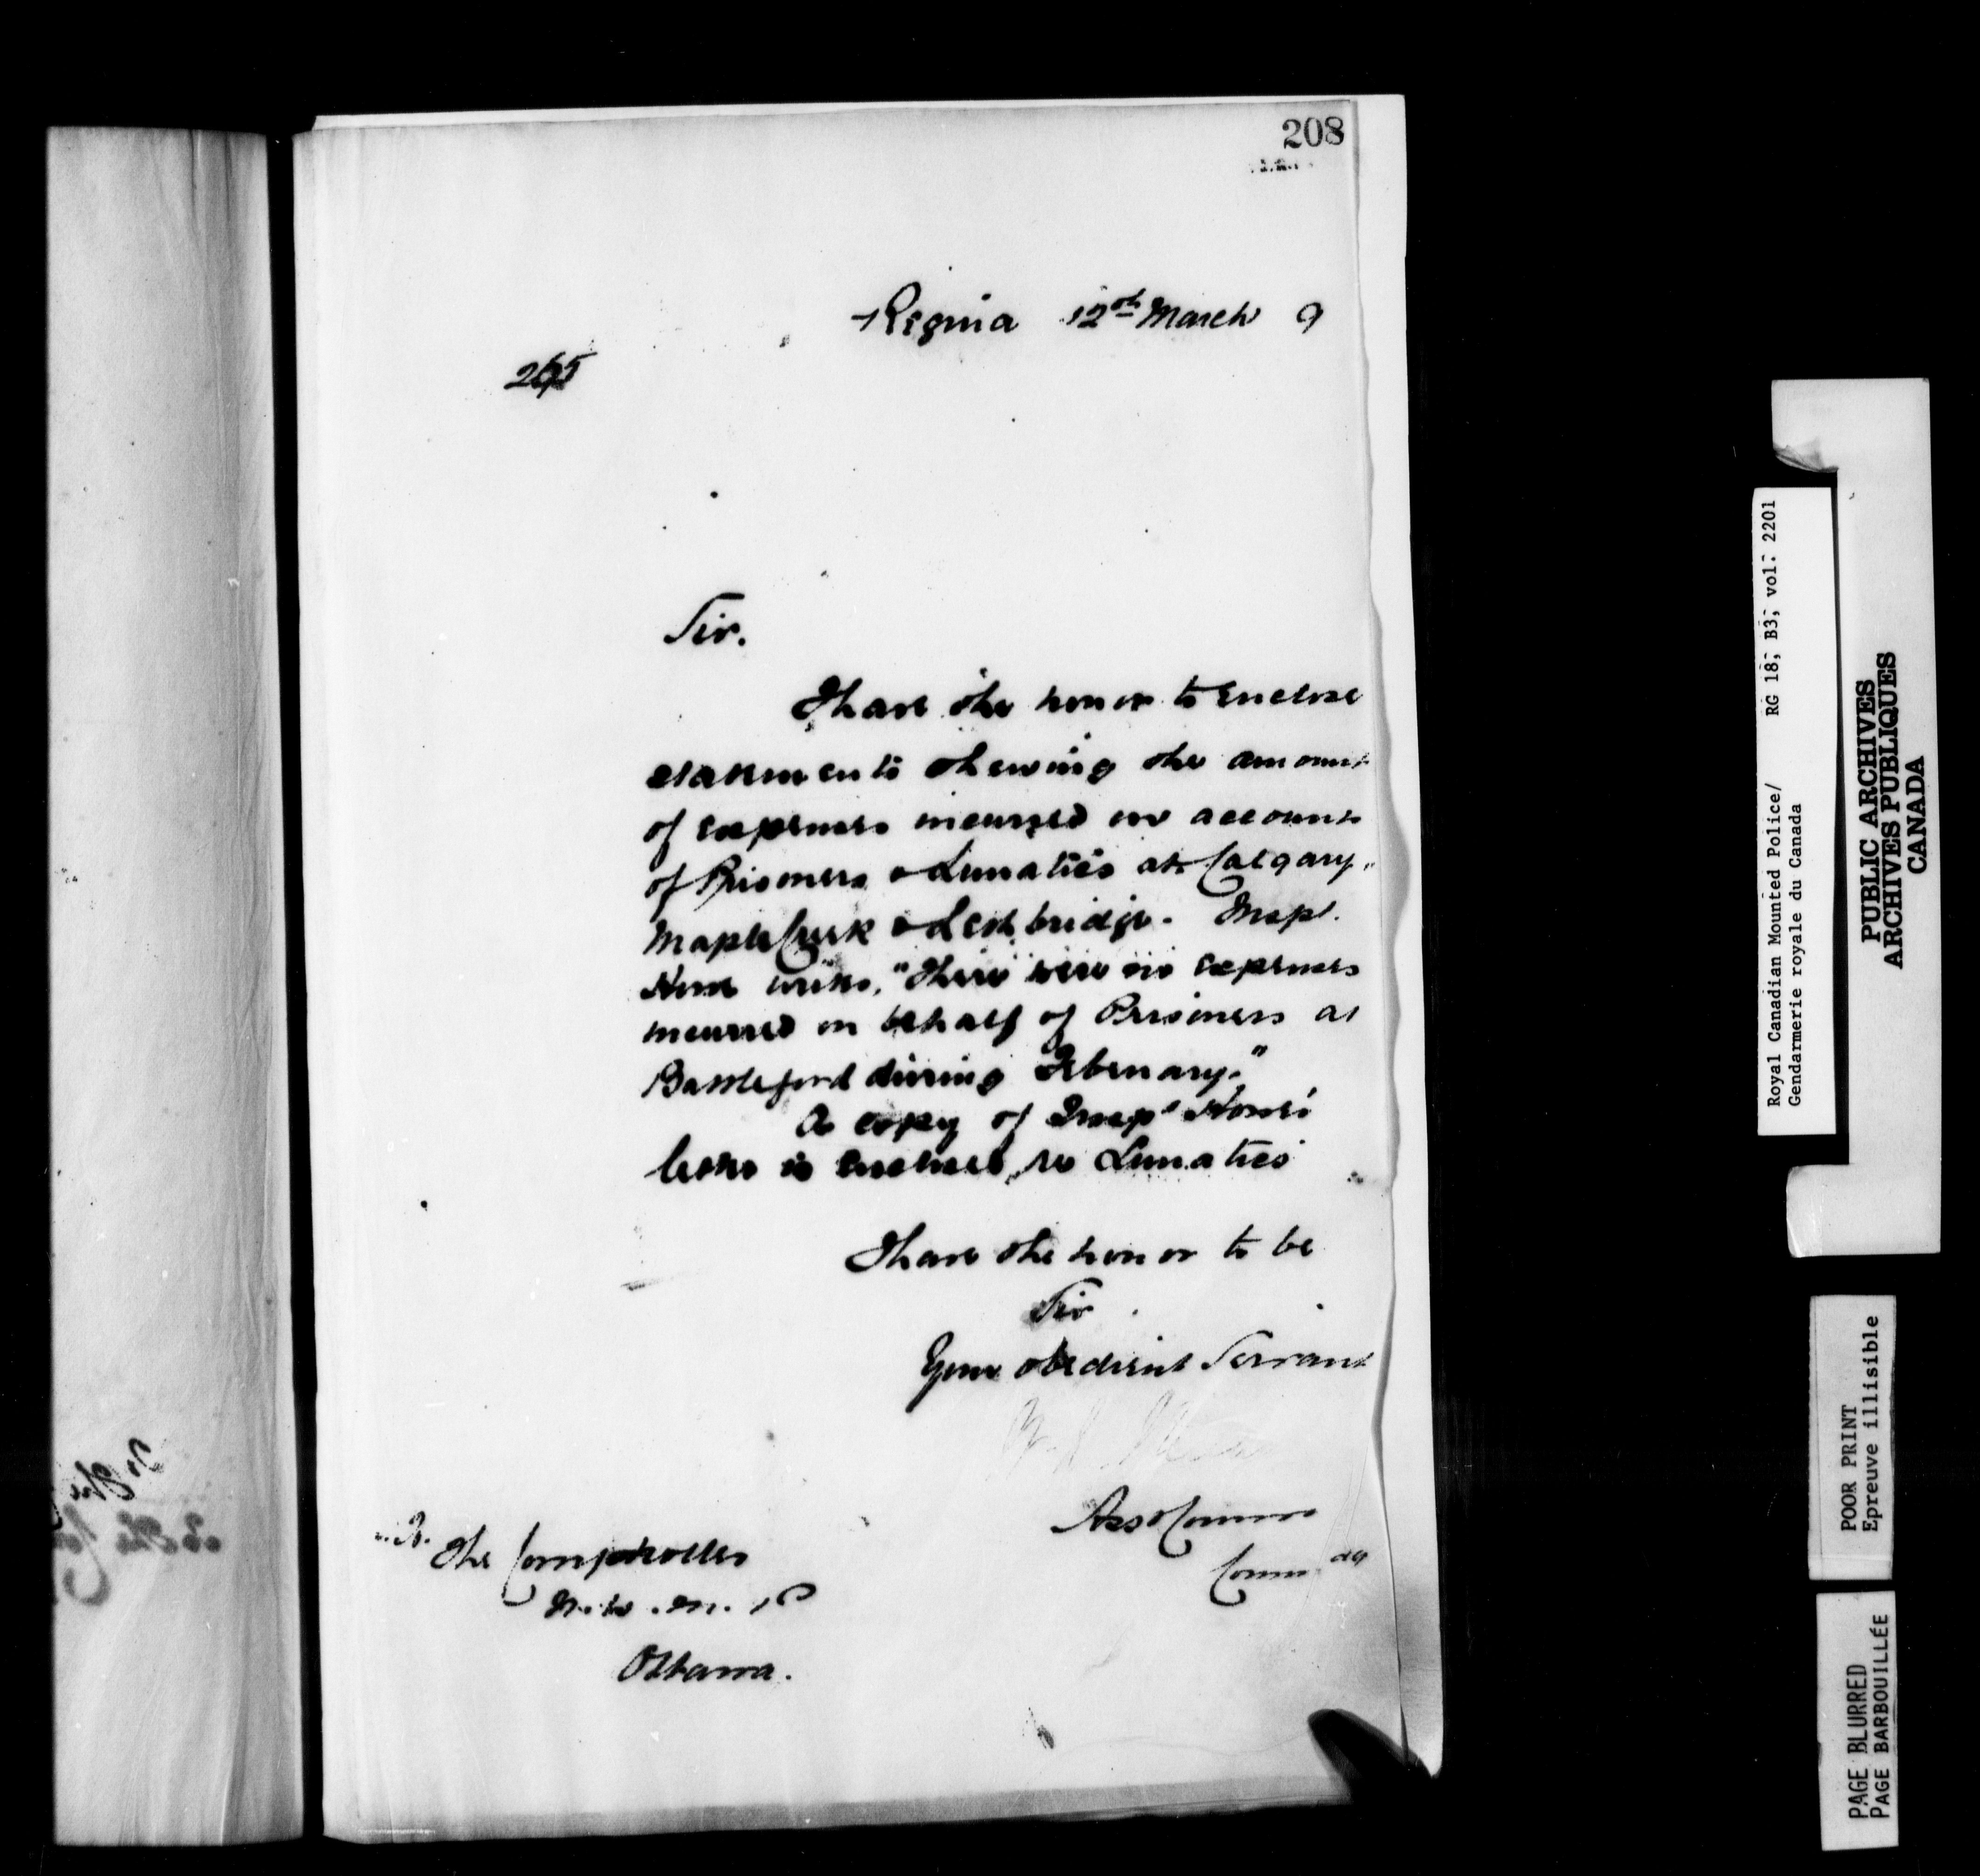 208
Regina 12th March 9
265
Sir.
I have the honor to enclose
statements shewing the amount
of expenses incurred on account
of Prisoners & Lunatics at Calgary,
Maple Creek & Lethbridge. Inspr.
Howe writes, "There were no expenses
incurred on behalf of Prisoners at
Battleford during February."
A copy of Inspr Howe's
letter is enclosed, re Lunatics
I have the honor to be
Sir
Your obedient Servant
Asst Commr
Commdg
The Comptroller
N. W. M. P
Ottawa.
Royal Canadian Mounted Police/ RG 18, B3, vol. 2201
Gendarmerie royale du Canada
PUBLIC ARCHIVES
ARCHIVES PUBLIQUES
CANADA
POOR PRINT
Epreuve illisible
PAGE BLURRED
PAGE BARBOUILLÉE